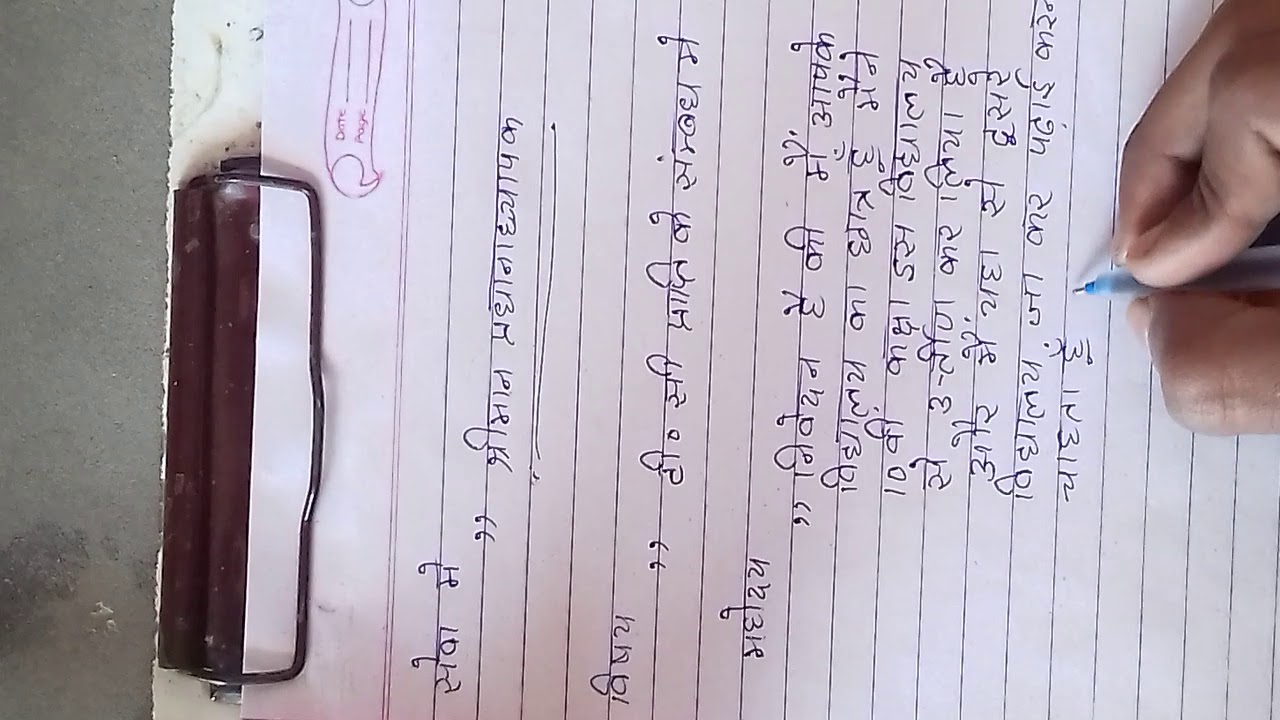 Date
Page
सेवा मे
“ श्रीमान प्रधानाध्यापक
विषय
“ टी० सी० प्राप्ति के संबंध मे
महोदय
“ निवेदन है की मैं आपके
विद्यालय का छात्र हूँ मैने
इस विद्यालय
से उ-तीर्ण कर लिया है
और मैं यहा से दुसरे
विद्यालय में जा कर पढ़ाई करना
चाहता हूँ